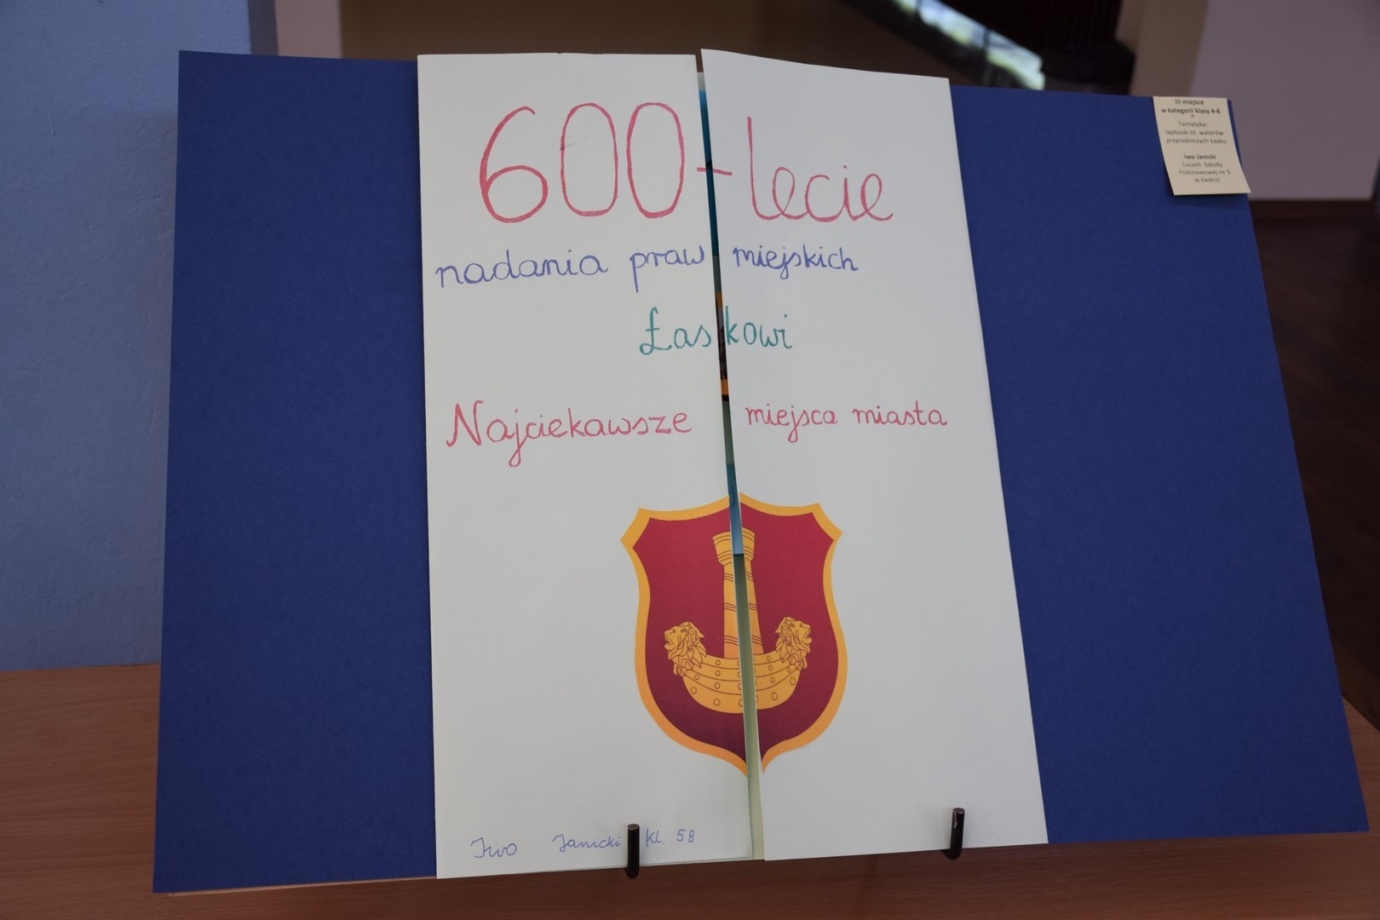 600-lecie
nadania praw miejskich
Łaskowi
Najciekawsze miejsca miasta
Iwo Janicki kl. 5B
III miejsce
w kategorii klasy 4-6
Tematyka:
lapbook nt. walorów
przyrodniczych Łasku
Iwo Janicki
(uczeń Szkoły
Podstawowej nr 5
w Łasku)